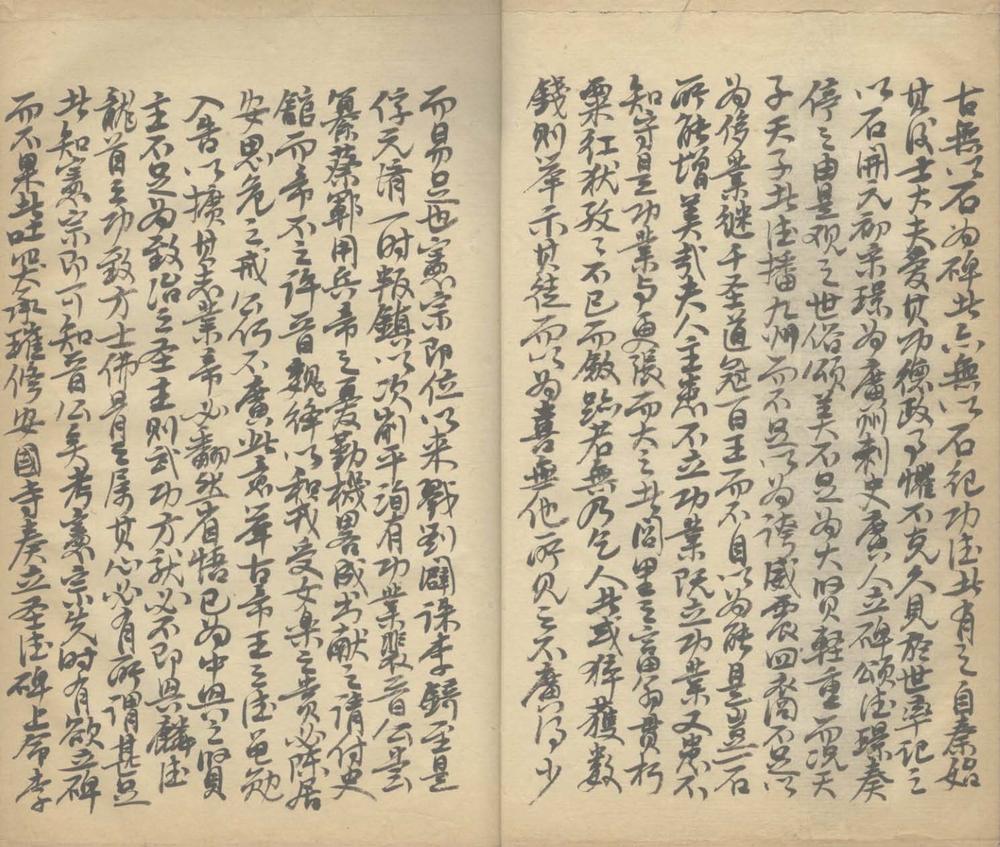 古無以石為碑者亦無以石紀功德者有之自秦始
其後士大夫愛其功德政事懼不克久見於世率記之
以石開元初宋璟為廣州刺史廣人立碑頌德璟奏
停之由是观之世俗頌美不足為大賢軽重而况天
子天子者德播九州而不足以為誇威震四裔不足以
為侈業继千圣道冠百王而不自以為能是豈一石
所能增美哉夫人主患不立功業既立功業又患不
知守是功業与更張而大之者闾里之富翁貫朽
粟红狄孜孜不已而欿跲若無乃乞人者或猝獲数
錢則举示其徒而以為喜無他所见之不廣得少
而易足也憲宗即位以来戮劉闢诛李錡至是
俘元濟一时叛鎮以次削平洵有功業裴晋公
纂蔡鄆用兵帝之憂勤機畧成书献之請付史
館而帝不之许晋魏绛以和戎受女樂之賞必陳居
安思危之戒公何不廣此意举古帝王之德黾勉
入告以擴其志業帝必翻然省悟已為中興之賢
主不足為致治之圣主則武功方就必不即興麟德
龍首之功致方士佛骨之属其心必有所謂甚足
者知憲宗即可知晋公矣考憲宗先时有欲立碑
而不果者吐突承璀修安國寺奏立圣德碑上命李